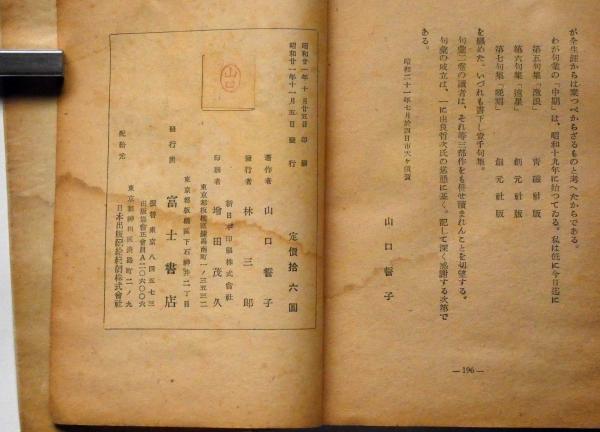 が全生涯からは棄つべからざるものと考へたからである。
わが句業の「中期」は、昭和十九年に始つてゐる。私は既に今日迄に
第五句集「激浪」 青磁社版
第六句集「遠星」 創元社版
第七句集「晩刻」 創元社版
を纏めた。いづれも書下し壹千句集。
句彙二卷の讀者は、それ等三部作をも併せ讀まれんことを切望する。
句彙の成立は、一に由良哲次氏の慫慂に基く。記して深く感謝する次第で
ある。
昭和二十一年七月於四日市天ヶ須賀
山口誓子
—196—
定價拾六圓
著作者 山口誓子
發行者 林三郎
新日本印刷株式會社
印刷者 増田茂久
東京都板橋區練馬南町一ノ三五三二
東京都板橋區下石神井二丁目
發行所 富士書店
振替東京八四五七三
出版協會正會員A二〇六〇〇六
東京都神田區淡路町二ノ九
配給元 日本出版配給統制株式會社
昭和廿一年十月廿五日 印刷
昭和廿一年十一月五日 發行
山口